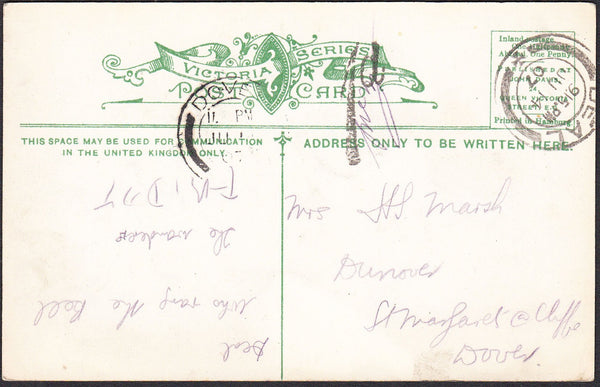 VICTORIA SERIES
POST CARD
Inland postage
One Halfpenny
Abroad One Penny
PUBLISHED AT
QUEEN VICTORIA
STREET E.C.
Printed in Hamburg
DEAL
DOVER
11 PM
THIS SPACE MAY BE USED FOR COMMUNICATION
IN THE UNITED KINGDOM ONLY.
ADDRESS ONLY TO BE WRITTEN HERE.
Deal
who rang the Bell
the wonders
Mrs Marsh
Dunover
St Margaret @ Cliffe
Dover